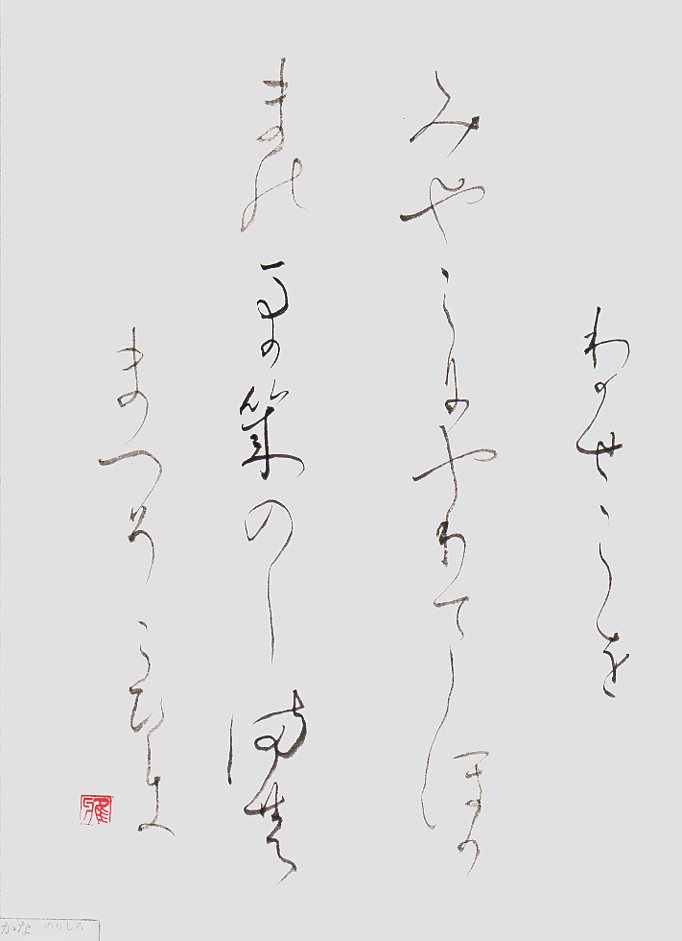 わかせこを
みやこにやりてしほか
まのまかきのしまの
まつそこひしき
かな のりしろ